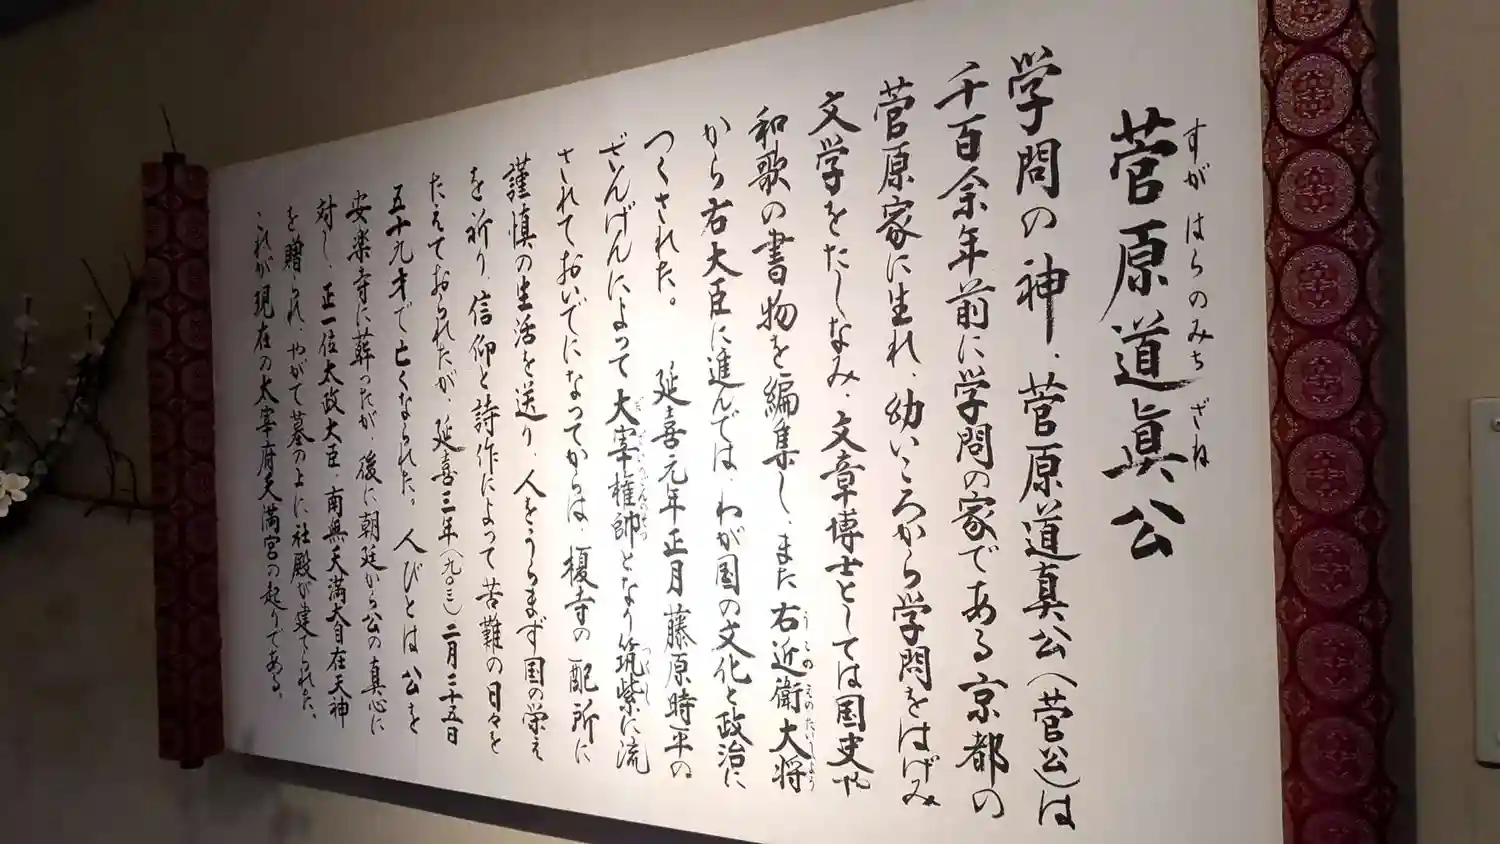 菅原道眞公
すがはらのみちざね
学問の神、菅原道真公(菅公)は
千百余年前に学問の家である京都の
菅原家に生れ、幼いころから学問をはげみ
文学をたしなみ、文章博士としては国史や
和歌の書物を編集し、また右近衛大将
から右大臣に進んでは、わが国の文化と政治に
つくされた。 延喜元年正月藤原時平の
ざんげんによって大宰権帥となり筑紫に流
されておいでになってからは、榎寺の配所に
謹慎の生活を送り、人をうらまず国の栄え
を祈り、信仰と詩作によって苦難の日々を
たえておられたが、延喜三年(九〇三)二月二十五日
五十九才で亡くなられた。人びとは公を
安楽寺に葬ったが、後に朝廷から公の真心に
対し、正一位太政大臣・南無天満大自在天神
を贈られ、やがて墓の上に社殿が建てられた。
これが現在の太宰府天満宮の起りである。